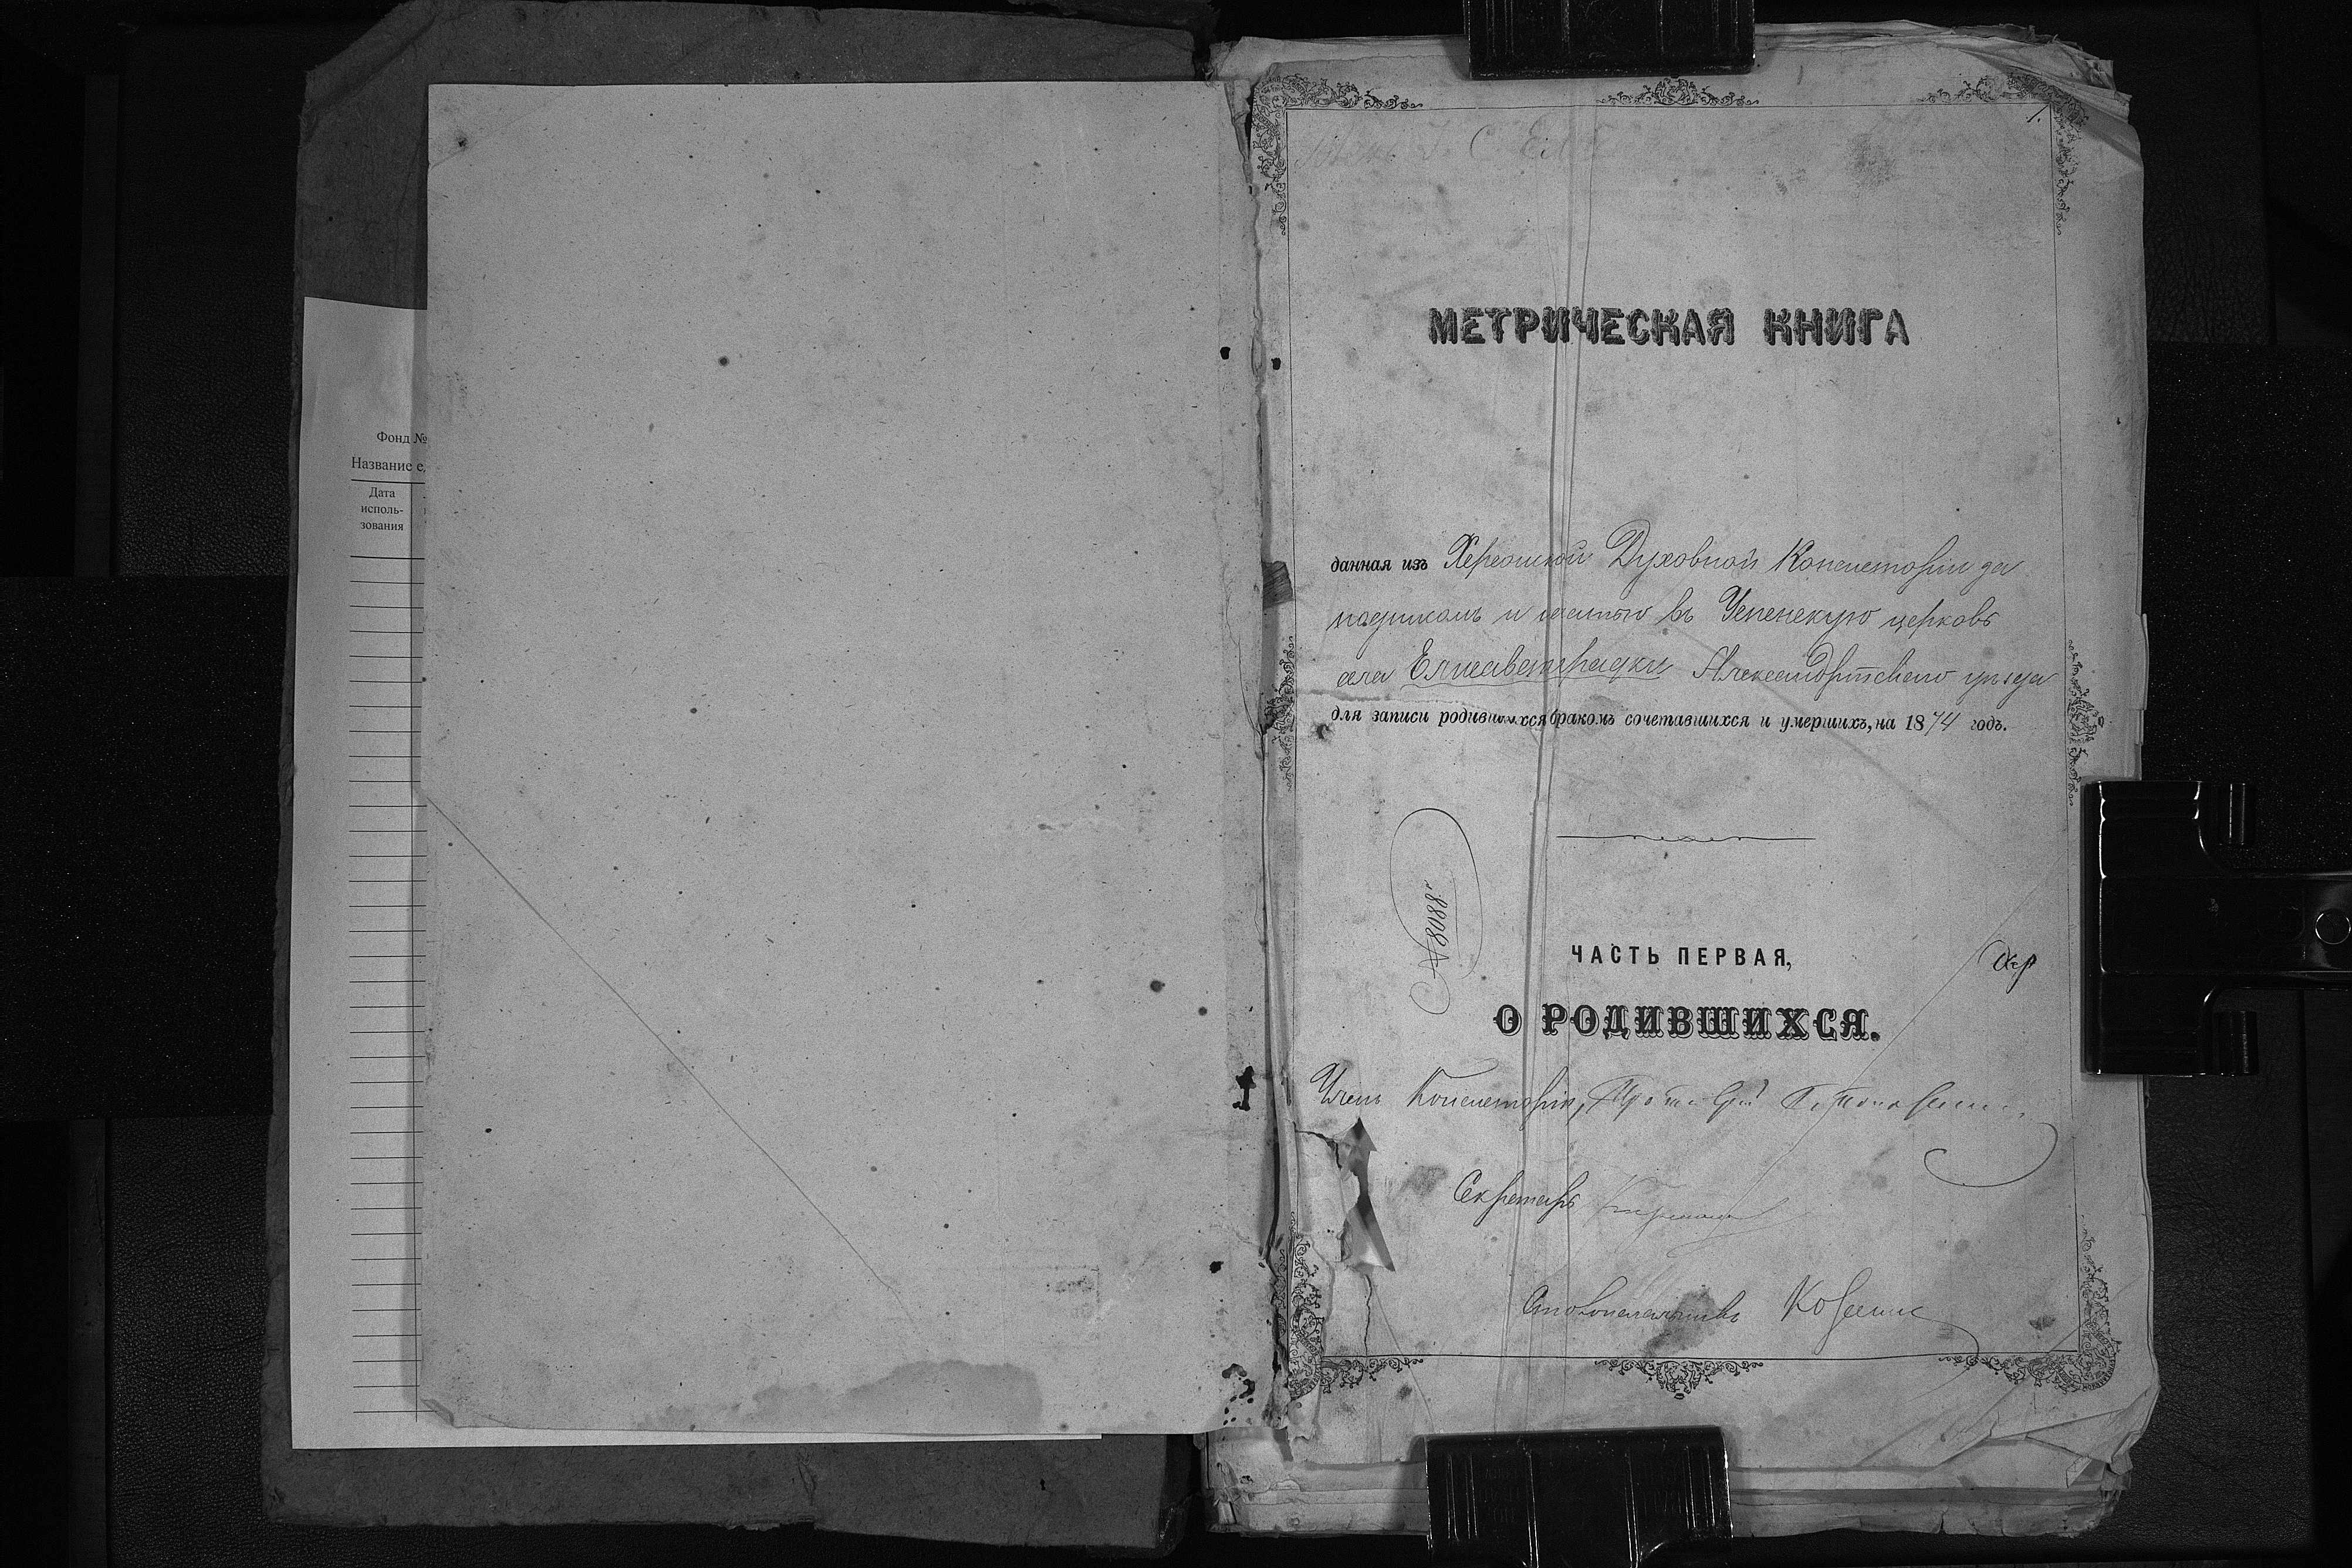 Фонд №
Название е
Дата
исполь-
зования
1.
МЕТРИЧЕСКАЯ КНИГА
данная изъ Херсонской Духовной Консисторіи за
подписомъ и печатью въ Успенскую церковь
села Елисаветградки Александрійскаго уѣзда
для записи родившихся бракомъ сочетавшихся и умершихъ, на 1874 годъ.
№ 8088.
ЧАСТЬ ПЕРВАЯ,
О РОДИВШИХСЯ.
Членъ Консисторіи, Протоіерей
Секретарь
Столоначальникъ